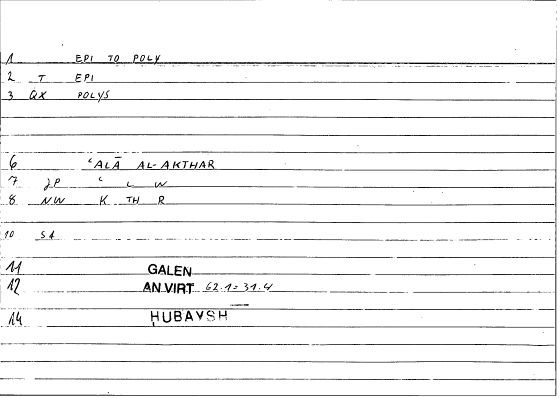 1 EPI TO POLY
2 T EPI
3 QX POLYS
6 ʿALĀ AL-AKTHAR
7 JP ʿ L W
8 NW K TH R
10 S1
11 GALEN
12 AN.VIRT 62.1=31.4
14 ḤUBAYSH